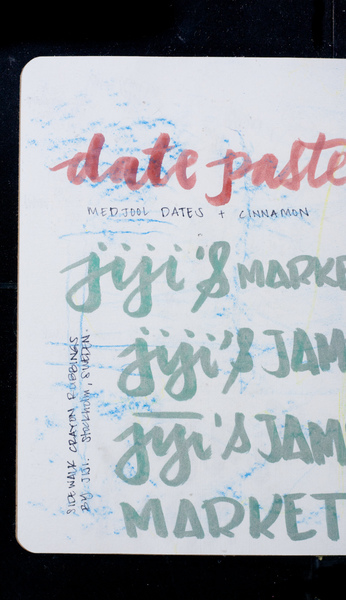 date paste
MEDJOOL DATES + CINNAMON
jiji's MARKE
jiji's JAM
jiji's JAM
MARKET
SIDEWALK CRAYON RUBBINGS
BY JIJI. STOCKHOLM, SWEDEN.